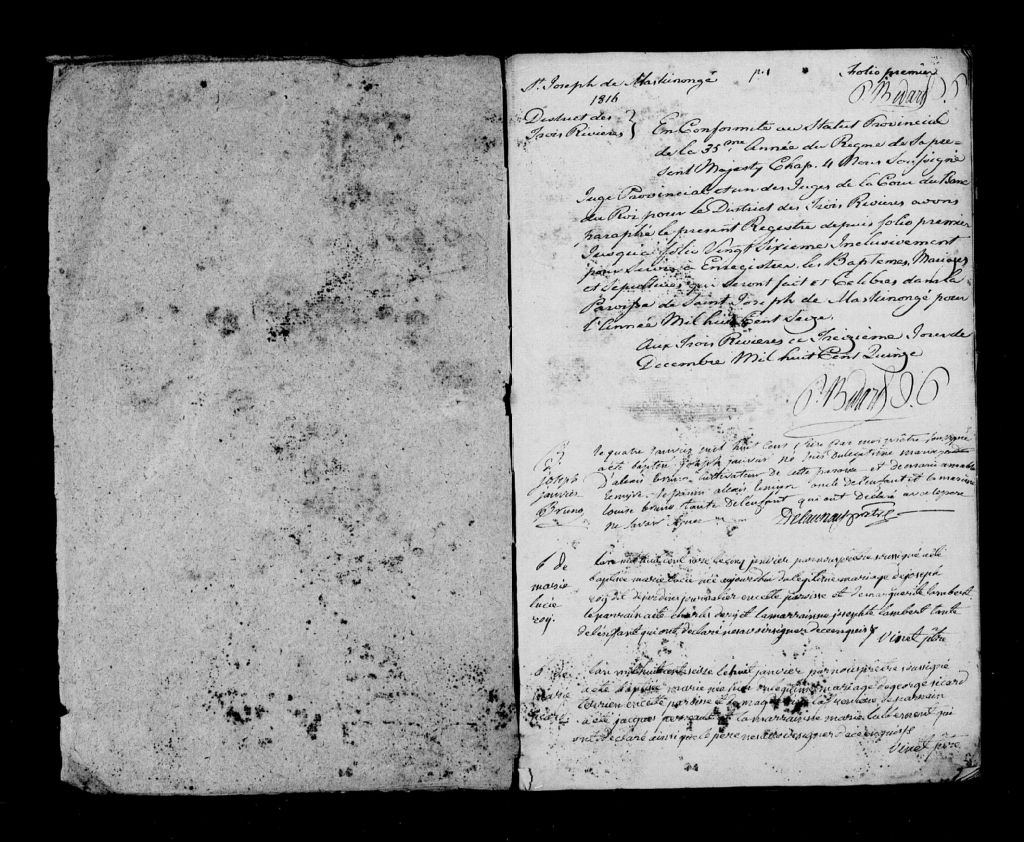 St. Joseph de Maskinongé
p. 1
Folio premier
P. Bedard J. P
1816
District des
Trois Rivieres }
En Conformité au Statut Provincial
de la 35me Année du Regne de Sa pre-
sent Majesty Chap. 4 Nous Soussigné
Juge Provincial et un des Juges de la Cour du Banc
du Roi pour le District des Trois Rivieres avons
paraphé le present Registre depuis folio premier
Jusqu'a folio Vingt Sixieme Inclusivement
pour Servir a Enregistrer les Baptemes, Mariages
et Sepultures qui Seront fait et Celebrés dans la
Paroisse de Saint Joseph de Maskinongé pour
l'Année Mil huit Cent Seize.
Aux Trois Rivieres ce Treizieme Jour de
Decembre Mil huit Cent Quinze
P. Bedard J. P
B.
joseph
janvier
Bruno
le quatre janvier mil huit cens seize par moi prêtre soussigné
a été baptisé joseph janvier né du légitime mariage
d'alexis bruno cultivateur de cette paroisse et de marie amable
lemyre le parain alexis lemyre oncle de l'enfant et la maraine
louise bruno tante de l'enfant qui ont declaré avec le pere
ne savoir signer
Delaunay prêtre
b de
marie
lucie
roy.
l'an mil huit cent seise le cinq janvier par nous prêtre soussigné a été
baptisée marie lucie née aujourdhui du légitime mariage de joseph
roy dit desjardins journalier en cette paroisse et de marguerite lambert
le parrain a été charles et la marrainne josephte lambert tante
de l'enfant qui ont declaré ne savoir signer de ce enquis
Vinet ptre
b de
marie
sicard
l'an mil huit cent seise le huit janvier par nous prêtre soussigné
a été baptisée marie née du légitime mariage de george sicard
en cette paroisse et le parrain
a été jacques la marrainne marie qui
ont declaré ainsi que le pere ne savoir signer de ce enquis
Vinet ptre